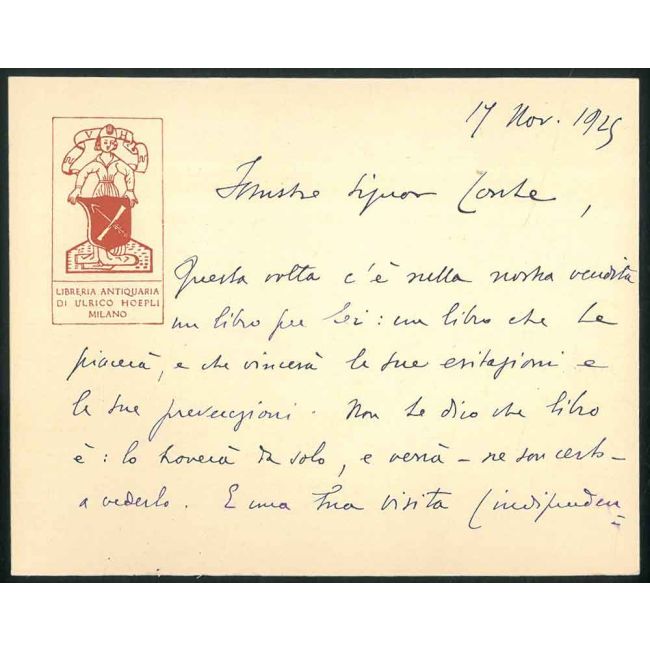 17 Nov. 1925
V H
LIBRERIA ANTIQUARIA
DI ULRICO HOEPLI
MILANO
Illustre Signor Conte,
Questa volta c'è nella nostra vendita
un libro per Lei: un libro che Le
piacerà, e che vincerà le sue esitazioni e
le sue prevenzioni. Non Le dico che libro
è: lo troverà da solo, e verrà – ne son certo –
a vederlo. E una Sua visita (indipenden=